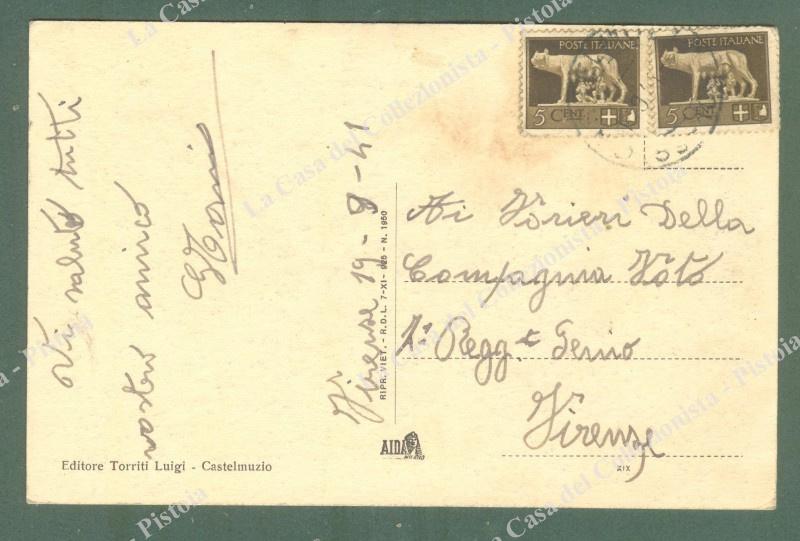 POSTE ITALIANE
5 CENT.
POSTE ITALIANE
5 CENT.
Vi saluto tutti
vostro amico
Firenze 19-8-41
RIPR. VIET. - R.D.L. 7-XI-925 - N. 1950
Ai Forieri Della
Compagnia Foto
1° Regg.t Genio
Firenze
AIDA
MILANO
Editore Torriti Luigi - Castelmuzio
XIX
La Casa del Collezionista - Pistoia